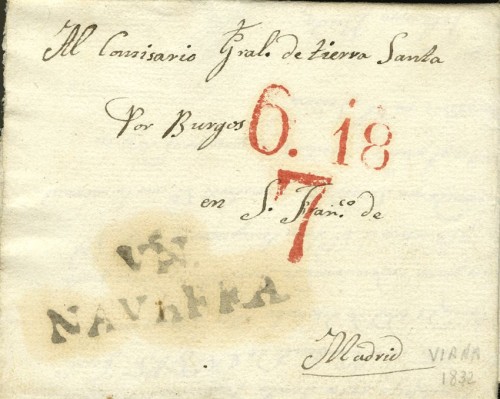 Al Comisario Gral. de tierra Santa
Por Burgos
6. 18
7
en S. Fran.co de
NAVARRA
Madrid
VIANA
1832